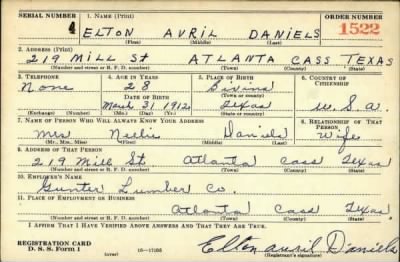 SERIAL NUMBER 1. NAME (Print) ORDER NUMBER
4 ELTON AVRIL DANIELS 1522
(First) (Middle) (Last)
2. ADDRESS (Print)
219 MILL St ATLANTA CASS TEXAS
(Number and street or R. F. D. number) (Town) (County) (State)
3. TELEPHONE 4. AGE IN YEARS 5. PLACE OF BIRTH 6. COUNTRY OF CITIZENSHIP
None 28 Bivins
DATE OF BIRTH (Town or county)
March 31 1912 Texas U.S.A.
(Exchange) (Number) (Mo.) (Day) (Yr.) (State or country)
7. NAME OF PERSON WHO WILL ALWAYS KNOW YOUR ADDRESS 8. RELATIONSHIP OF THAT PERSON
Mrs Neelie Daniels Wife
(Mr., Mrs., Miss) (First) (Middle) (Last)
9. ADDRESS OF THAT PERSON
219 Mill St. Atlanta Cass Texas
(Number and street or R. F. D. number) (Town) (County) (State)
10. EMPLOYER'S NAME
Gunter Lumber Co.
11. PLACE OF EMPLOYMENT OR BUSINESS
Atlanta Cass Texas
(Number and street or R. F. D. number) (Town) (County) (State)
I AFFIRM THAT I HAVE VERIFIED ABOVE ANSWERS AND THAT THEY ARE TRUE.
REGISTRATION CARD
D. S. S. Form 1 (over) Elton Avril Daniels
(Registrant's signature)